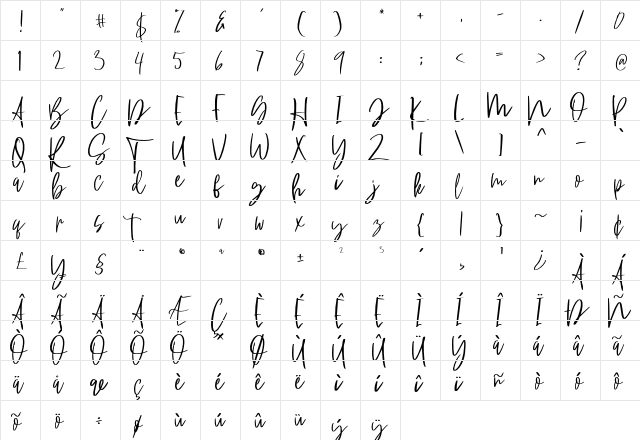 ! " # $ % & ' ( ) * + , - . / 0
1 2 3 4 5 6 7 8 9 : ; < = > ? @
A B C D E F G H I J K L M N O P
Q R S T U V W X Y Z [ \ ] ^ -
a b c d e f g h i j k l m n o p
q r s t u v w x y z { | } ~ ¡ ¢
£ ¥ § ¨ © ª ® ± ² ³ ´ ¸ ¹ ¿ À Á
Â Ã Ä Å Æ Ç È É Ê Ë Ì Í Î Ï Ð Ñ
Ò Ó Ô Õ Ö Ø Ù Ú Û Ü Ý à á â ã
ä å æ ç è é ê ë ì í î ï ñ ò ó ô
õ ö ÷ ø ù ú û ü ý ÿ